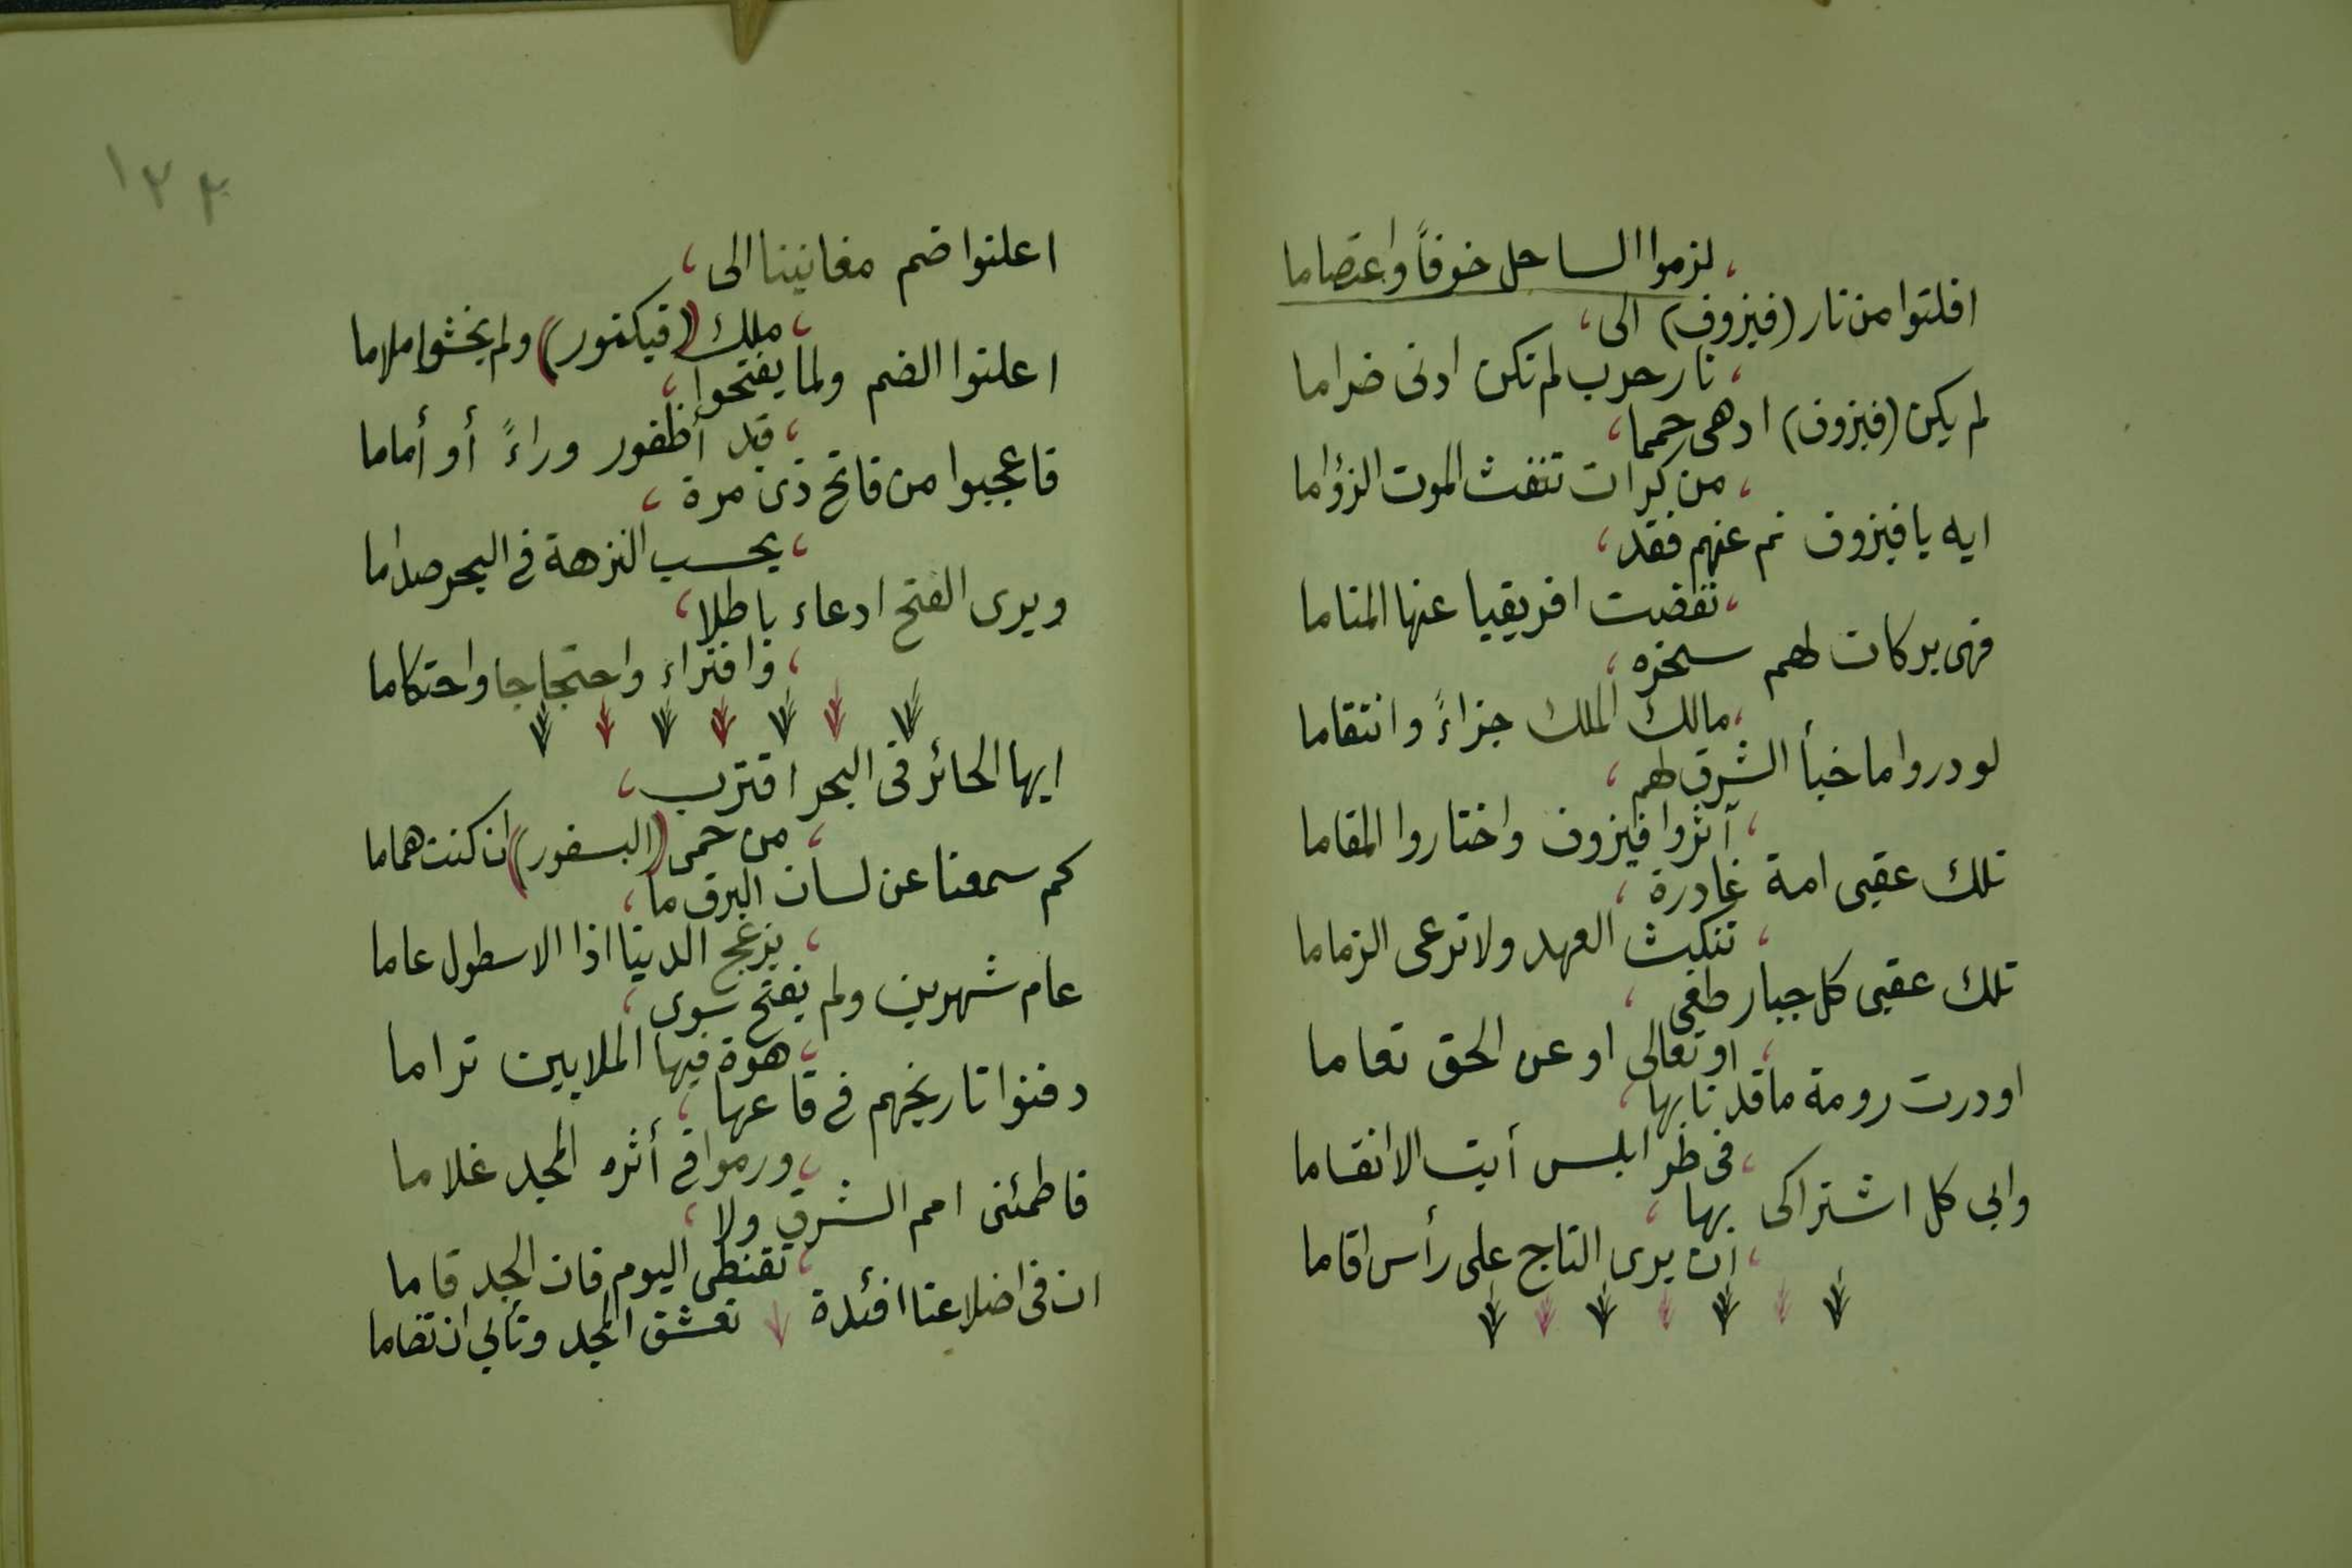 لزموا الساحل خوفاً واعتصاما
افلتوا من نار (فيزوف) الى،
،نار حرب لم تكن ادنى ضراما
لم يكن (فيزوف) ادهى حمما،
،من كرات تنفث الموت الزؤاما
ايه يا فيزوف نم عنهم فقد،
،نفضت افريقيا عنها المناما
فهى بركان لهم سخره،
،مالك الملك جزاءً وانتقاما
لو دروا ما خبأ الشرق لهم،
،آثروا فيزوف واختاروا المقاما
تلك عقبى امة غادرة،
،تنكث العهد ولا ترعى الزماما
تلك عقبى كل جبار طغى،
،او تعالى او عن الحق تعاما
او درت رومة ما قد نابها،
،فى طرابلس أبت الا انقساما
وابى كل اشتراكى بها،
،ان يرى التاج على رأس اقاما
١٢٢
اعلنوا ضم مغانينا الى،
،ملك (فيكتور) ولم يخشوا ملاما
اعلنوا الضم ولما يفتحوا،
،قيد أظفور وراءً أو أماما
فاعجبوا من فاتح ذى مرة،
،يحسب النزهة في البحر صداما
ويرى الفتح ادعاء باطلا،
،وافتراء واحتجاجا واحتكاما
ايها الحائر فى البحر اقترب،
،من حمى (البسفور) ان كنت هماما
كم سمعنا عن لسان البرق ما،
،يزعج الدنيا اذا الاسطول عاما
عام شهرين ولم يفتح سوى،
،هوة فيها الملايين تراما
دفنوا تاريخهم في قاعها،
،ورموا في أثره المجد غلاما
فاطمئنى امم الشرق ولا،
،تقنطى اليوم فان الجد قاما
ان فى اضلاعنا افئدة تعشق المجد وتأبى ان تضاما